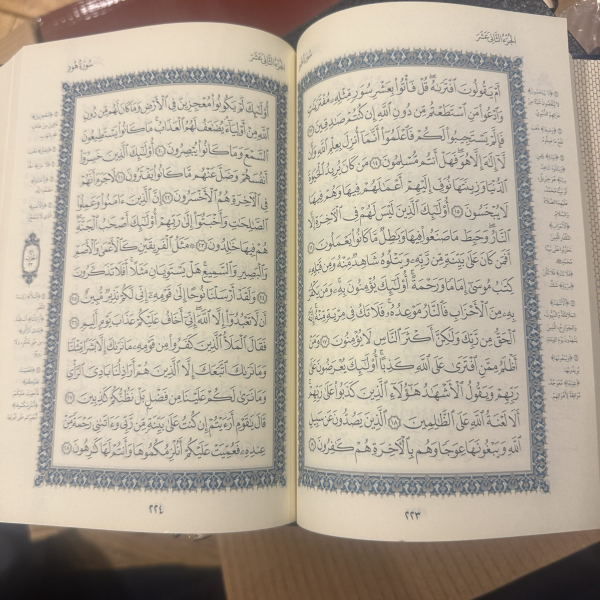 الجزء الثاني عشر
أَمْ يَقُولُونَ ٱفْتَرَىٰهُ قُلْ فَأْتُوا۟ بِعَشْرِ سُوَرٍ مِّثْلِهِۦ مُفْتَرَيَٰتٍ
وَٱدْعُوا۟ مَنِ ٱسْتَطَعْتُم مِّن دُونِ ٱللَّهِ إِن كُنتُمْ صَٰدِقِينَ ١٣
فَإِلَّمْ يَسْتَجِيبُوا۟ لَكُمْ فَٱعْلَمُوٓا۟ أَنَّمَآ أُنزِلَ بِعِلْمِ ٱللَّهِ وَأَن
لَّآ إِلَٰهَ إِلَّا هُوَ فَهَلْ أَنتُم مُّسْلِمُونَ ١٤ مَن كَانَ يُرِيدُ ٱلْحَيَوٰةَ
ٱلدُّنْيَا وَزِينَتَهَا نُوَفِّ إِلَيْهِمْ أَعْمَٰلَهُمْ فِيهَا وَهُمْ فِيهَا
لَا يُبْخَسُونَ ١٥ أُو۟لَٰٓئِكَ ٱلَّذِينَ لَيْسَ لَهُمْ فِى ٱلْـَٔاخِرَةِ إِلَّا
ٱلنَّارُ وَحَبِطَ مَا صَنَعُوا۟ فِيهَا وَبَٰطِلٌ مَّا كَانُوا۟ يَعْمَلُونَ ١٦
أَفَمَن كَانَ عَلَىٰ بَيِّنَةٍ مِّن رَّبِّهِۦ وَيَتْلُوهُ شَاهِدٌ مِّنْهُ وَمِن قَبْلِهِۦ
كِتَٰبُ مُوسَىٰٓ إِمَامًا وَرَحْمَةً أُو۟لَٰٓئِكَ يُؤْمِنُونَ بِهِۦ وَمَن يَكْفُرْ
بِهِۦ مِنَ ٱلْأَحْزَابِ فَٱلنَّارُ مَوْعِدُهُۥ فَلَا تَكُ فِى مِرْيَةٍ مِّنْهُ إِنَّهُ
ٱلْحَقُّ مِن رَّبِّكَ وَلَٰكِنَّ أَكْثَرَ ٱلنَّاسِ لَا يُؤْمِنُونَ ١٧ وَمَنْ
أَظْلَمُ مِمَّنِ ٱفْتَرَىٰ عَلَى ٱللَّهِ كَذِبًا أُو۟لَٰٓئِكَ يُعْرَضُونَ عَلَىٰ
رَبِّهِمْ وَيَقُولُ ٱلْأَشْهَٰدُ هَٰٓؤُلَآءِ ٱلَّذِينَ كَذَبُوا۟ عَلَىٰ رَبِّهِمْ
أَلَا لَعْنَةُ ٱللَّهِ عَلَى ٱلظَّٰلِمِينَ ١٨ ٱلَّذِينَ يَصُدُّونَ عَن سَبِيلِ
ٱللَّهِ وَيَبْغُونَهَا عِوَجًا وَهُم بِٱلْـَٔاخِرَةِ هُمْ كَٰفِرُونَ ١٩
٢٢٣
الجزء الثاني عشر
سورة هود
أُو۟لَٰٓئِكَ لَمْ يَكُونُوا۟ مُعْجِزِينَ فِى ٱلْأَرْضِ وَمَا كَانَ لَهُم مِّن دُونِ
ٱللَّهِ مِنْ أَوْلِيَآءَ يُضَٰعَفُ لَهُمُ ٱلْعَذَابُ مَا كَانُوا۟ يَسْتَطِيعُونَ
ٱلسَّمْعَ وَمَا كَانُوا۟ يُبْصِرُونَ ٢٠ أُو۟لَٰٓئِكَ ٱلَّذِينَ خَسِرُوٓا۟
أَنفُسَهُمْ وَضَلَّ عَنْهُم مَّا كَانُوا۟ يَفْتَرُونَ ٢١ لَا جَرَمَ أَنَّهُمْ
فِى ٱلْـَٔاخِرَةِ هُمُ ٱلْأَخْسَرُونَ ٢٢ إِنَّ ٱلَّذِينَ ءَامَنُوا۟ وَعَمِلُوا۟
ٱلصَّٰلِحَٰتِ وَأَخْبَتُوٓا۟ إِلَىٰ رَبِّهِمْ أُو۟لَٰٓئِكَ أَصْحَٰبُ ٱلْجَنَّةِ
هُمْ فِيهَا خَٰلِدُونَ ٢٣ مَثَلُ ٱلْفَرِيقَيْنِ كَٱلْأَعْمَىٰ وَٱلْأَصَمِّ
وَٱلْبَصِيرِ وَٱلسَّمِيعِ هَلْ يَسْتَوِيَانِ مَثَلًا أَفَلَا تَذَكَّرُونَ
٢٤ وَلَقَدْ أَرْسَلْنَا نُوحًا إِلَىٰ قَوْمِهِۦٓ إِنِّى لَكُمْ نَذِيرٌ مُّبِينٌ ٢٥
أَن لَّا تَعْبُدُوٓا۟ إِلَّا ٱللَّهَ إِنِّىٓ أَخَافُ عَلَيْكُمْ عَذَابَ يَوْمٍ أَلِيمٍ ٢٦
فَقَالَ ٱلْمَلَأُ ٱلَّذِينَ كَفَرُوا۟ مِن قَوْمِهِۦ مَا نَرَىٰكَ إِلَّا بَشَرًا مِّثْلَنَا
وَمَا نَرَىٰكَ ٱتَّبَعَكَ إِلَّا ٱلَّذِينَ هُمْ أَرَاذِلُنَا بَادِىَ ٱلرَّأْىِ
وَمَا نَرَىٰ لَكُمْ عَلَيْنَا مِن فَضْلٍۭ بَلْ نَظُنُّكُمْ كَٰذِبِينَ ٢٧
قَالَ يَٰقَوْمِ أَرَءَيْتُمْ إِن كُنتُ عَلَىٰ بَيِّنَةٍ مِّن رَّبِّى وَءَاتَىٰنِى رَحْمَةً مِّنْ
عِندِهِۦ فَعُمِّيَتْ عَلَيْكُمْ أَنُلْزِمُكُمُوهَا وَأَنتُمْ لَهَا كَٰرِهُونَ ٢٨
٢٢٤